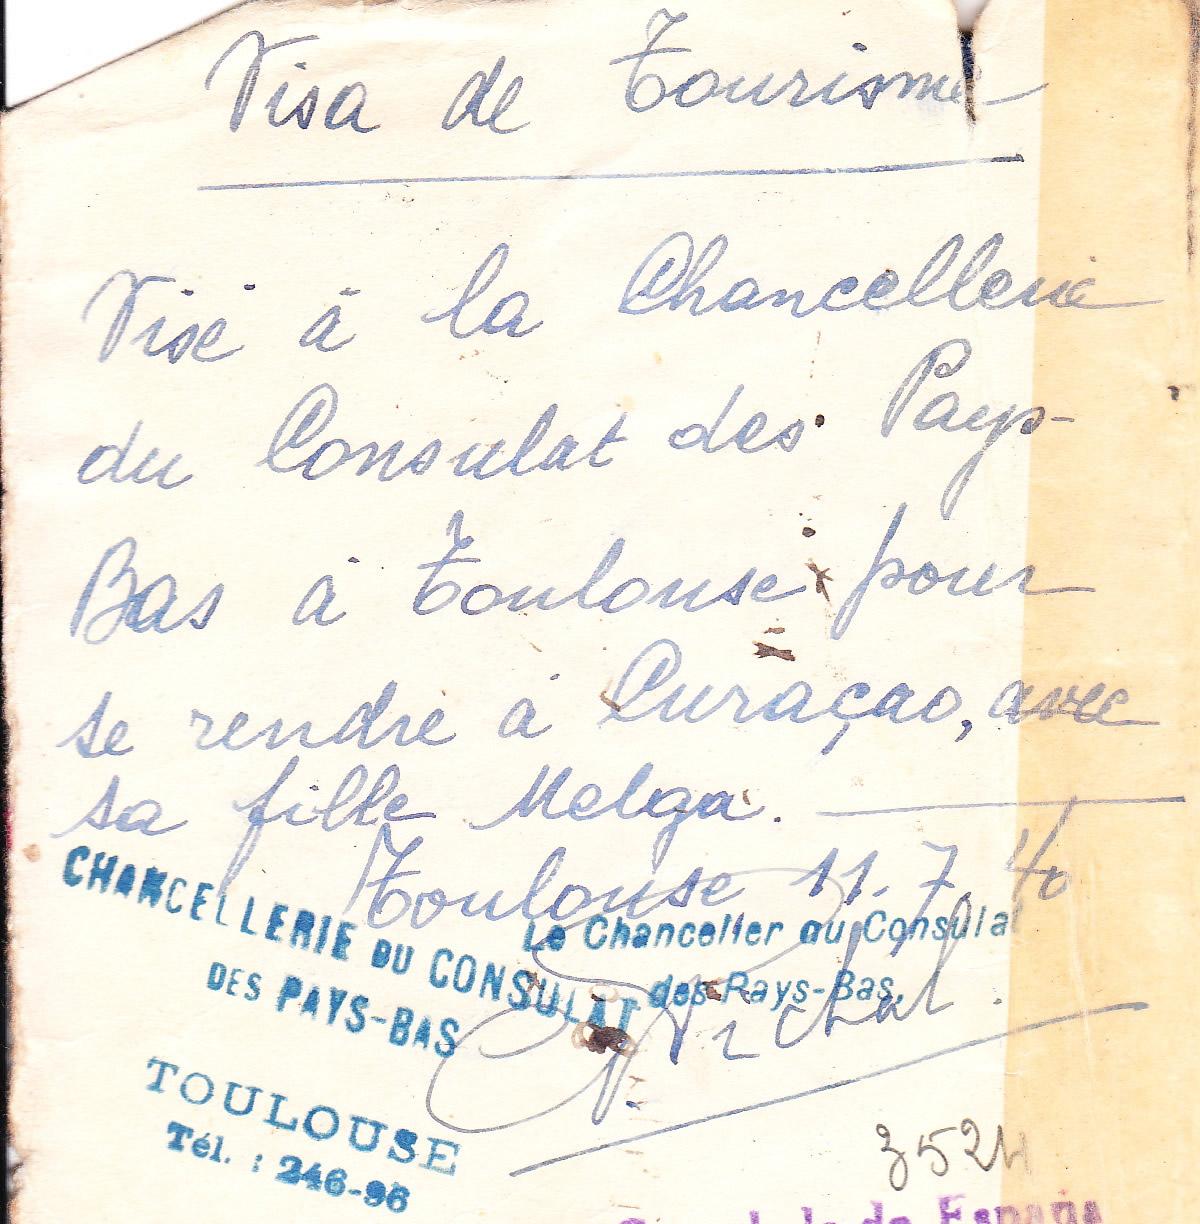 Visa de Tourisme
Visé à la Chancellerie
du Consulat des Pays-
Bas à Toulouse pour
se rendre à Curaçao, avec
sa fille Melga.
Toulouse 11.7.40
CHANCELLERIE DU CONSULAT
DES PAYS-BAS
TOULOUSE
Tél. : 246-96
Le Chancelier du Consulat
des Pays-Bas,
3524
de España